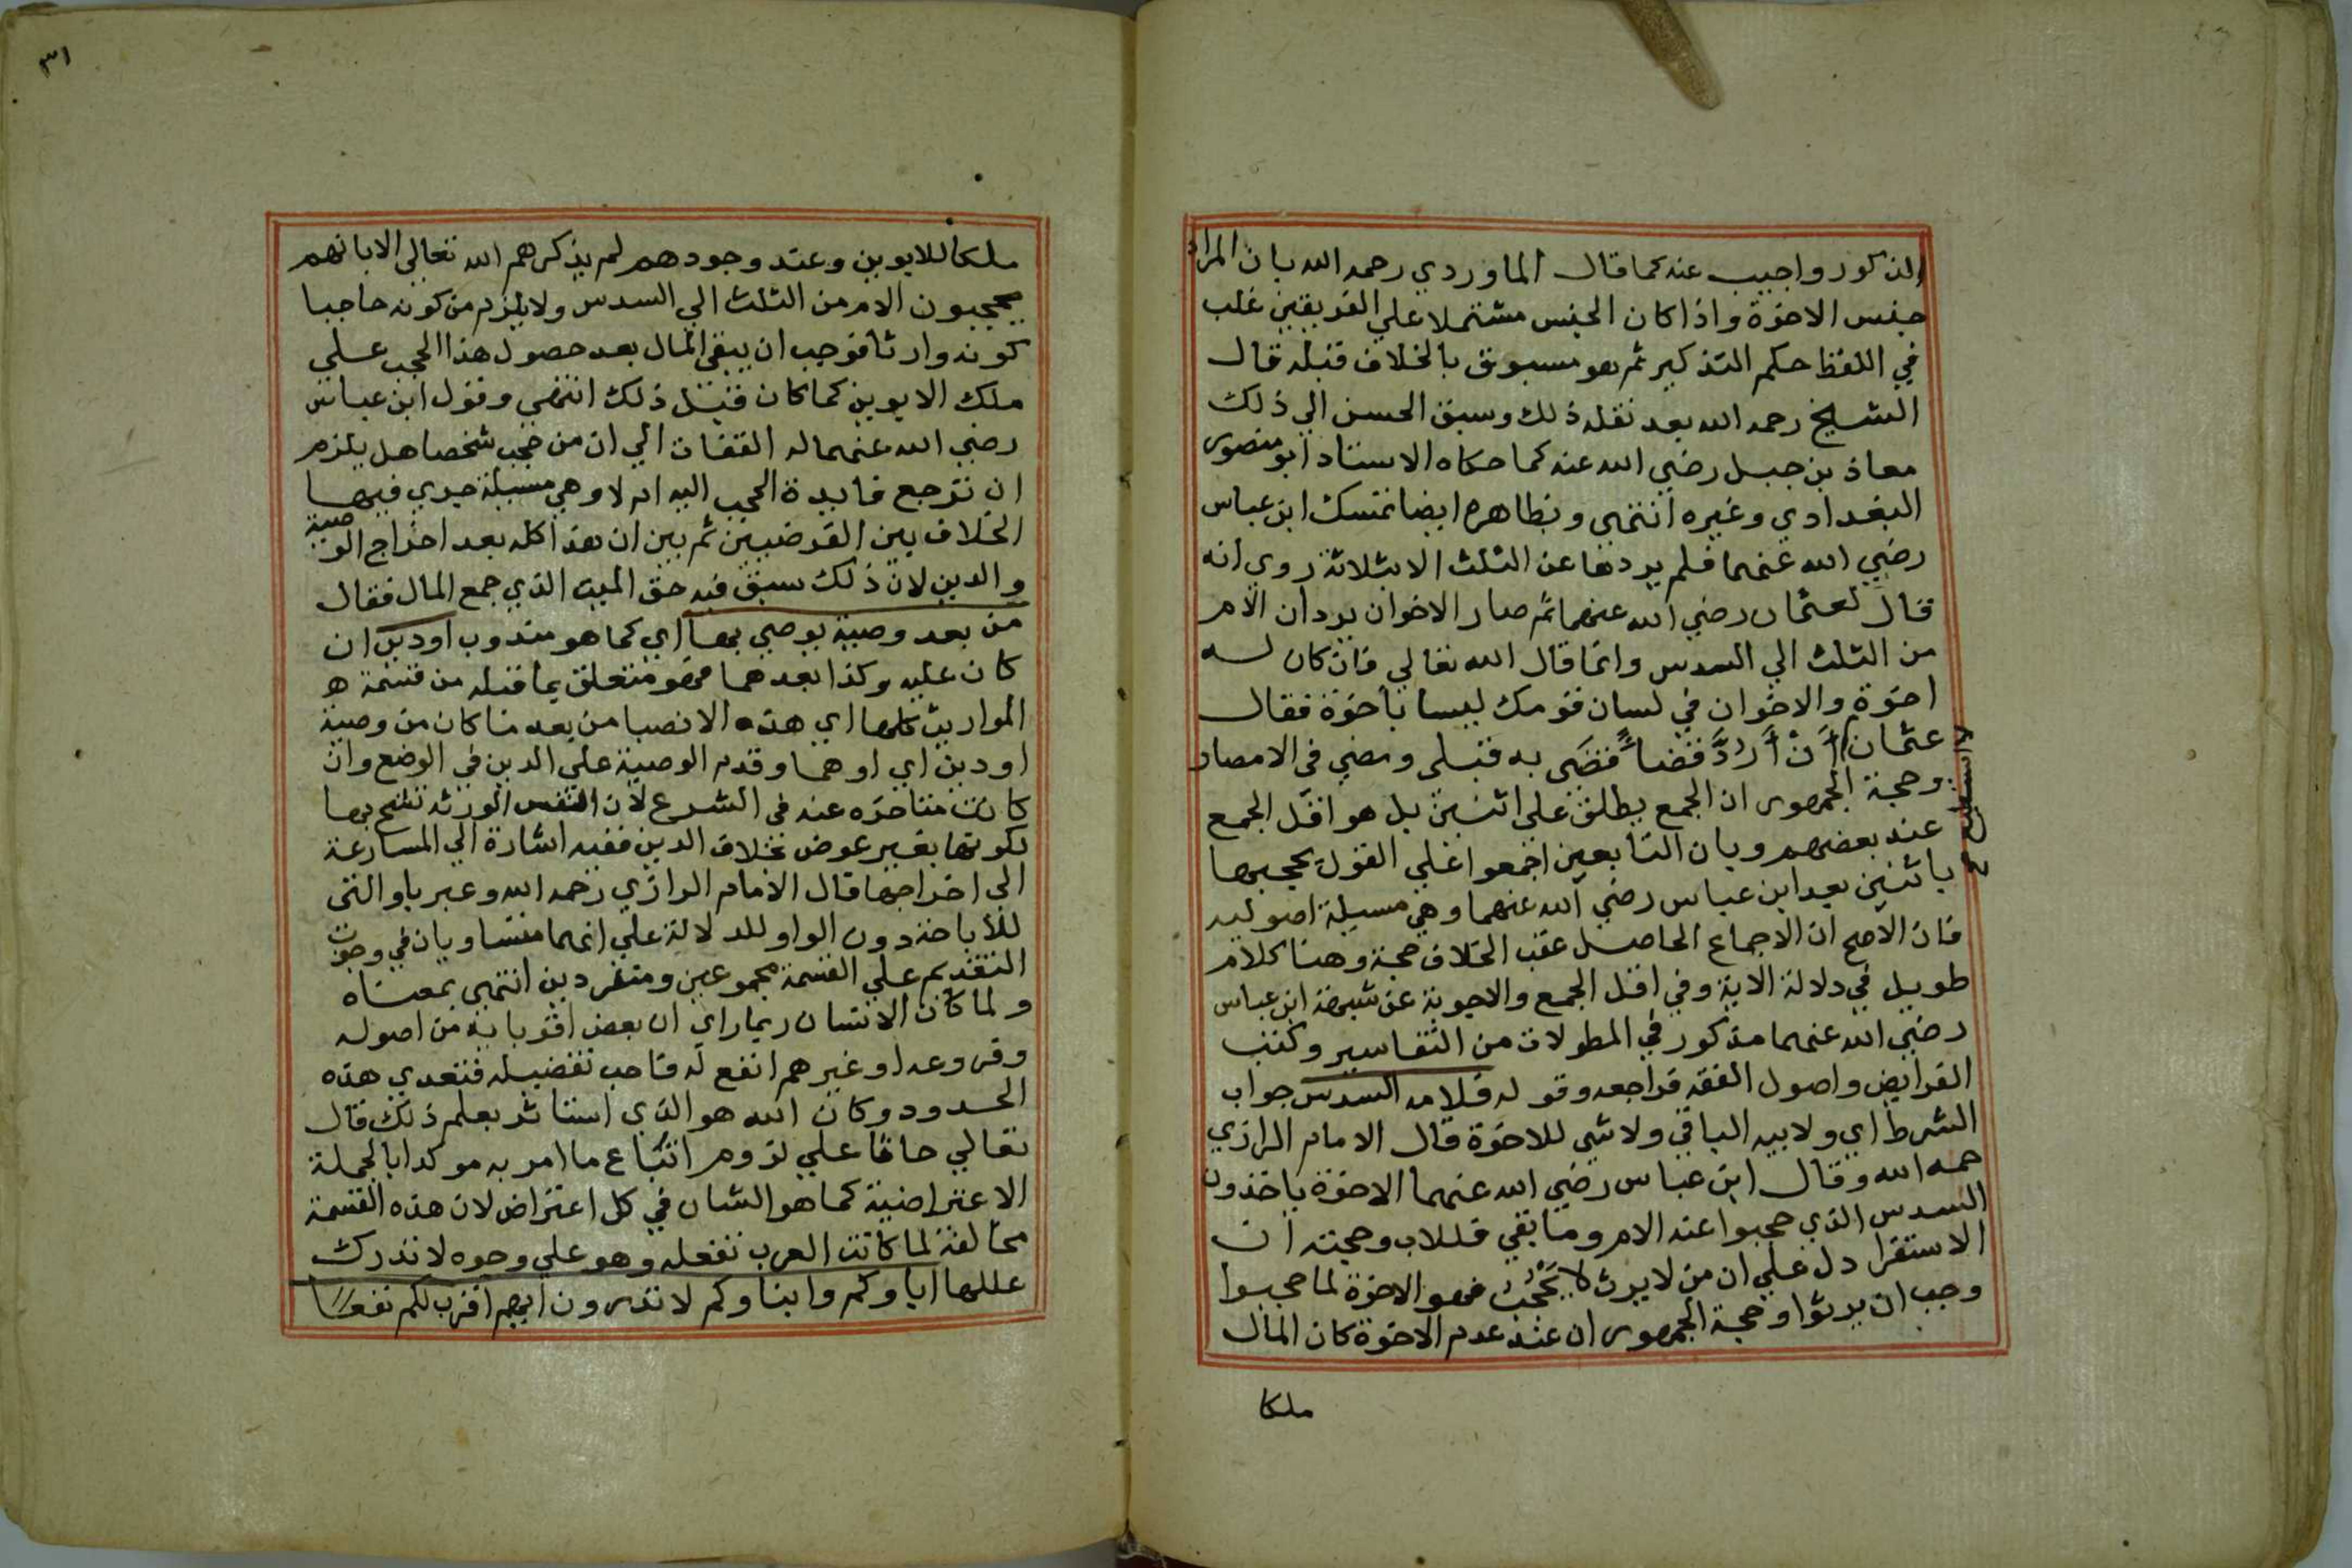 الذكور واجيب عنه كما قال الماوردي رحمه الله بان المراد
جنس الاخوة واذا كان الجنس مشتملا علي الفريقين غلب
في اللفظ حكم التذكير ثم هو مسبوق بالخلاف قبله قال
الشيخ رحمه الله بعد نقله ذلك وسبق الحسن الي ذلك
معاذ بن جبل رضي الله عنه كما حكاه الاستاد ابو منصور
البغدادي وغيره انتهي وبظاهره ايضا تمسك ابن عباس
رضي الله عنهما فلم يردها عن الثلث الا بثلاثة روي انه
قال لعثمان رضي الله عنهما ثم صار الاخوان يردان الام
من الثلث الي السدس وانما قال الله تعالي فان كان له
اخوة والاخوان في لسان قومك ليسا باخوة فقال
عثمان لا استطيع أَنْ أَرُدَّ قضاءً قضَي به قبلي ومضي في الامصار
وحجة الجمهور ان الجمع يطلق علي اثنين بل هو اقل الجمع
عند بعضهم وبان التابعين اجمعوا علي القول بحجبها
باثنين بعد ابن عباس رضي الله عنهما وهي مسيلة اصوليه
فان الاصح ان الاجماع الحاصل عقب الخلاف حجة وهنا كلام
طويل في دلالة الاية وفي اقل الجمع والاجوبة عن شبهة ابن عباس
رضي الله عنهما مذكور في المطولات من التفاسير وكتب
الفرايض واصول الفقه فراجعه وقوله فلامه السدس جواب
الشرط اي ولابيه الباقي ولا شي للاخوة قال الامام الرازي
حمه الله وقال ابن عباس رضي الله عنهما الاخوة ياخذون
السدس الذي حجبوا عنه الام وما بقي فللاب وحجته ان
الاستقرا دل علي ان من لا يرث لا يَحْجُبُ فهو الاخوة لما حجبوا
وجب ان يرثوا وحجة الجمهور ان عند عدم الاخوة كان المال
ملكا
٣١
ملكا للابوين وعند وجودهم لم يذكرهم الله تعالي الا بانهم
يحجبون الام من الثلث الي السدس ولا يلزم من كونه حاجبا
كونه وارثا فوجب ان يبقي المال بعد حصول هذا الحجب علي
ملك الابوين كما كان قبل ذلك انتهي وقول ابن عباس
رضي الله عنهما له التفات الي ان من حجب شخصا هل يلزم
ان ترجع فايدة الحجب اليه ام لا وهي مسيلة جري فيها
الخلاف بين الفرضيين ثم بين ان هذا كله بعد اخراج الوصية
والدين لان ذلك سبق فيه حق الميت الذي جمع المال فقال
من بعد وصية يوصي بها اي كما هو مندوب اودين ان
كان عليه وكذا بعدهما فهو متعلق بما قبله من قسمة
المواريث كلها اي هذه الانصبا من بعد ما كان من وصية
اودين اي اوهما وقدم الوصية علي الدين في الوضع وان
كانت متاخره عنه في الشرع لان انفس الورثه تشح بها
لكونها بغير عوض بخلاف الدين ففيه اشارة الي المسارعة
الي اخراجها قال الامام الرازي رحمه الله وعبر باو التي
للأباحة دون الواو للدلالة علي انهما متساويان في وجوب
التقديم علي القسمة مجموعين ومنفردين انتهي بمعناه
ولما كان الانسان ربما راي ان بعض اقربايه من اصوله
وفروعه او غيرهم انفع له فاحب تفضيله فتعدي هذه
الحدود وكان الله هو الذي استاثر بعلم ذلك قال
تعالي حاثا علي لزوم اتباع ما امر به موكدا بالجملة
الاعتراضية كما هو الشان في كل اعتراض لان هذه القسمة
مخالفة لما كانت العرب تفعله وهو علي وجوه لا تدرك
عللها اباوكم وابناوكم لا تدرون ايهم اقرب لكم نفعا